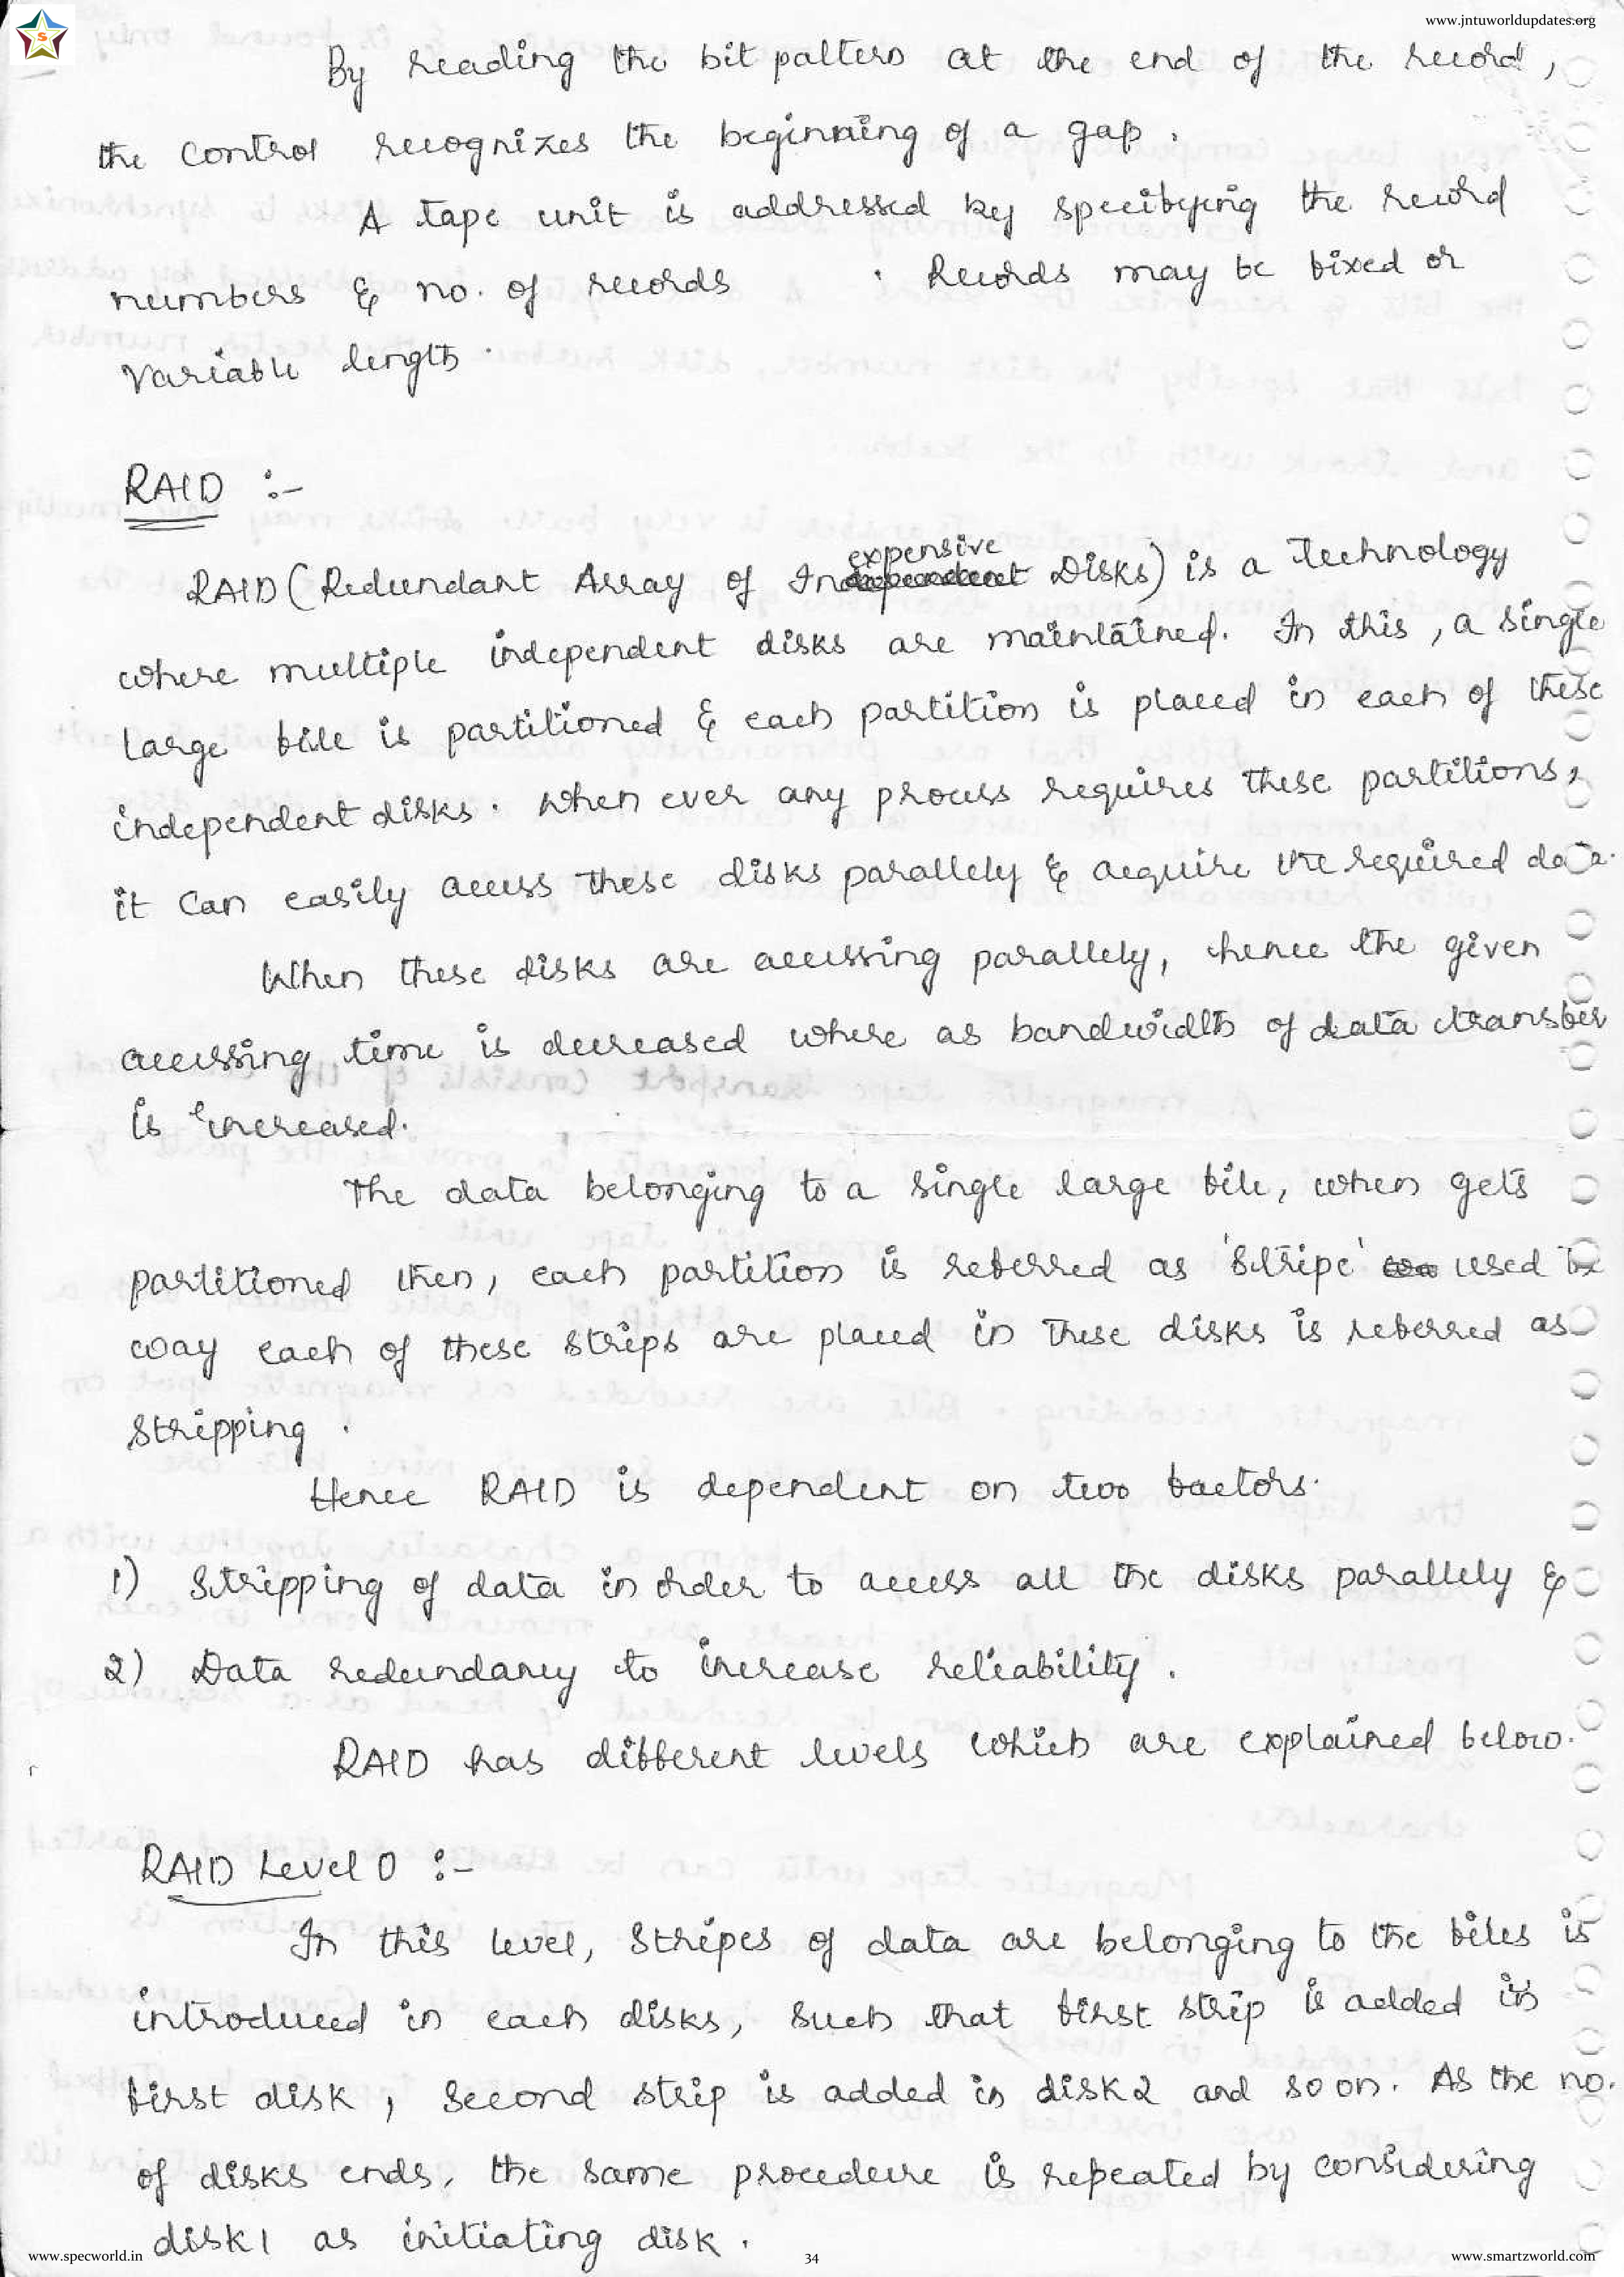 www.jntuworldupdates.org
S
By reading the bit pattern at the end of the record,
the control recognizes the beginning of a gap.
A tape unit is addressed by specifying the record
numbers & no. of records . Records may be fixed or
Variable length.
RAID :-
expensive
RAID (Redundant Array of Independent Disks) is a Technology
where multiple independent disks are maintained. In this, a single
large file is partitioned & each partition is placed in each of these
independent disks. When ever any process requires these partitions,
it can easily access these disks parallely & acquire the required data.
When these disks are accessing parallely, hence the given
accessing time is decreased where as bandwidth of data transfer
is increased.
The data belonging to a single large file, when gets
partitioned then, each partition is referred as 'stripe' used
way each of these strips are placed in these disks is referred as
stripping.
Hence RAID is dependent on two factors.
1) Stripping of data in order to access all the disks parallely &
2) Data redundancy to increase reliability.
RAID has different levels which are explained below.
RAID Level 0 :-
In this level, stripes of data are belonging to the files is
introduced in each disks, such that first strip is added in
first disk, second strip is added in disk2 and so on. As the no.
of disks ends, the same procedure is repeated by considering
disk1 as initiating disk.
www.specworld.in
34
www.smartzworld.com